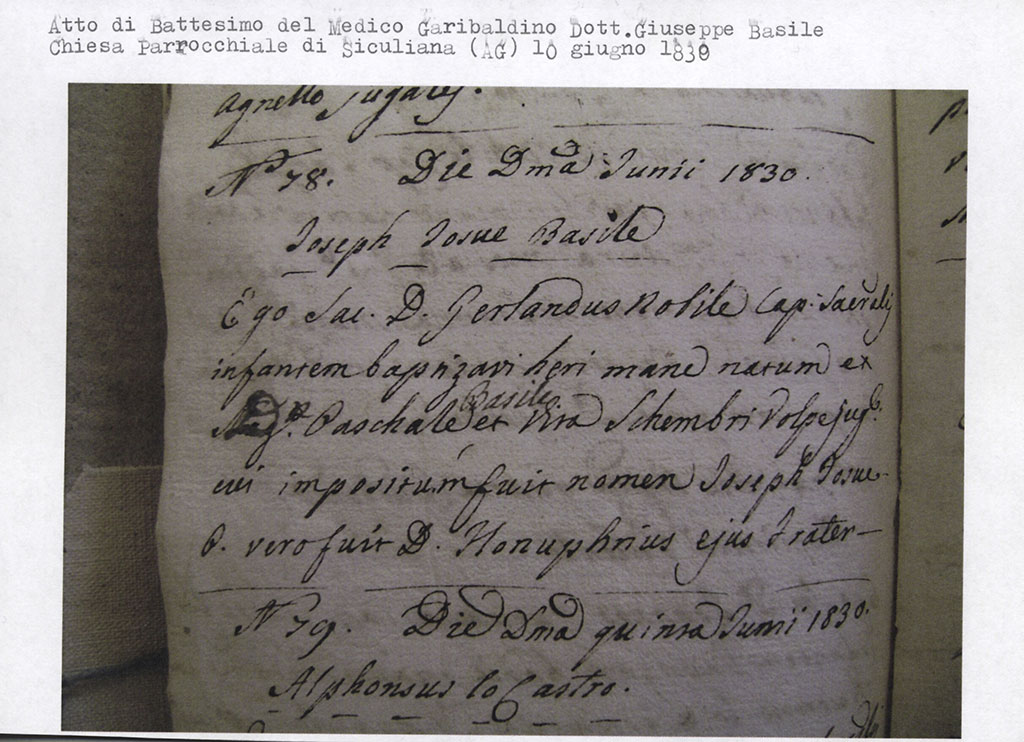 Atto di Battesimo del Medico Garibaldino Dott.Giuseppe Basile
Chiesa Parrocchiale di Siculiana (AG) 10 giugno 1830
Agnello jugales.
Nº 78. Die Dmã Junii 1830.
Joseph Josue Basile
Ego Sac. D. Gerlandus Nobile Cap. Sacralis
infantem baptizavi heri mane natum ex
Basile
Paschale et Vita Schembri Volpe jug.
cui impositum fuit nomen Joseph Josue.
P. vero fuit D. Honuphrius ejus frater
Nº 79. Die Dmã quinta Junii 1830.
Alphonsus lo Castro.